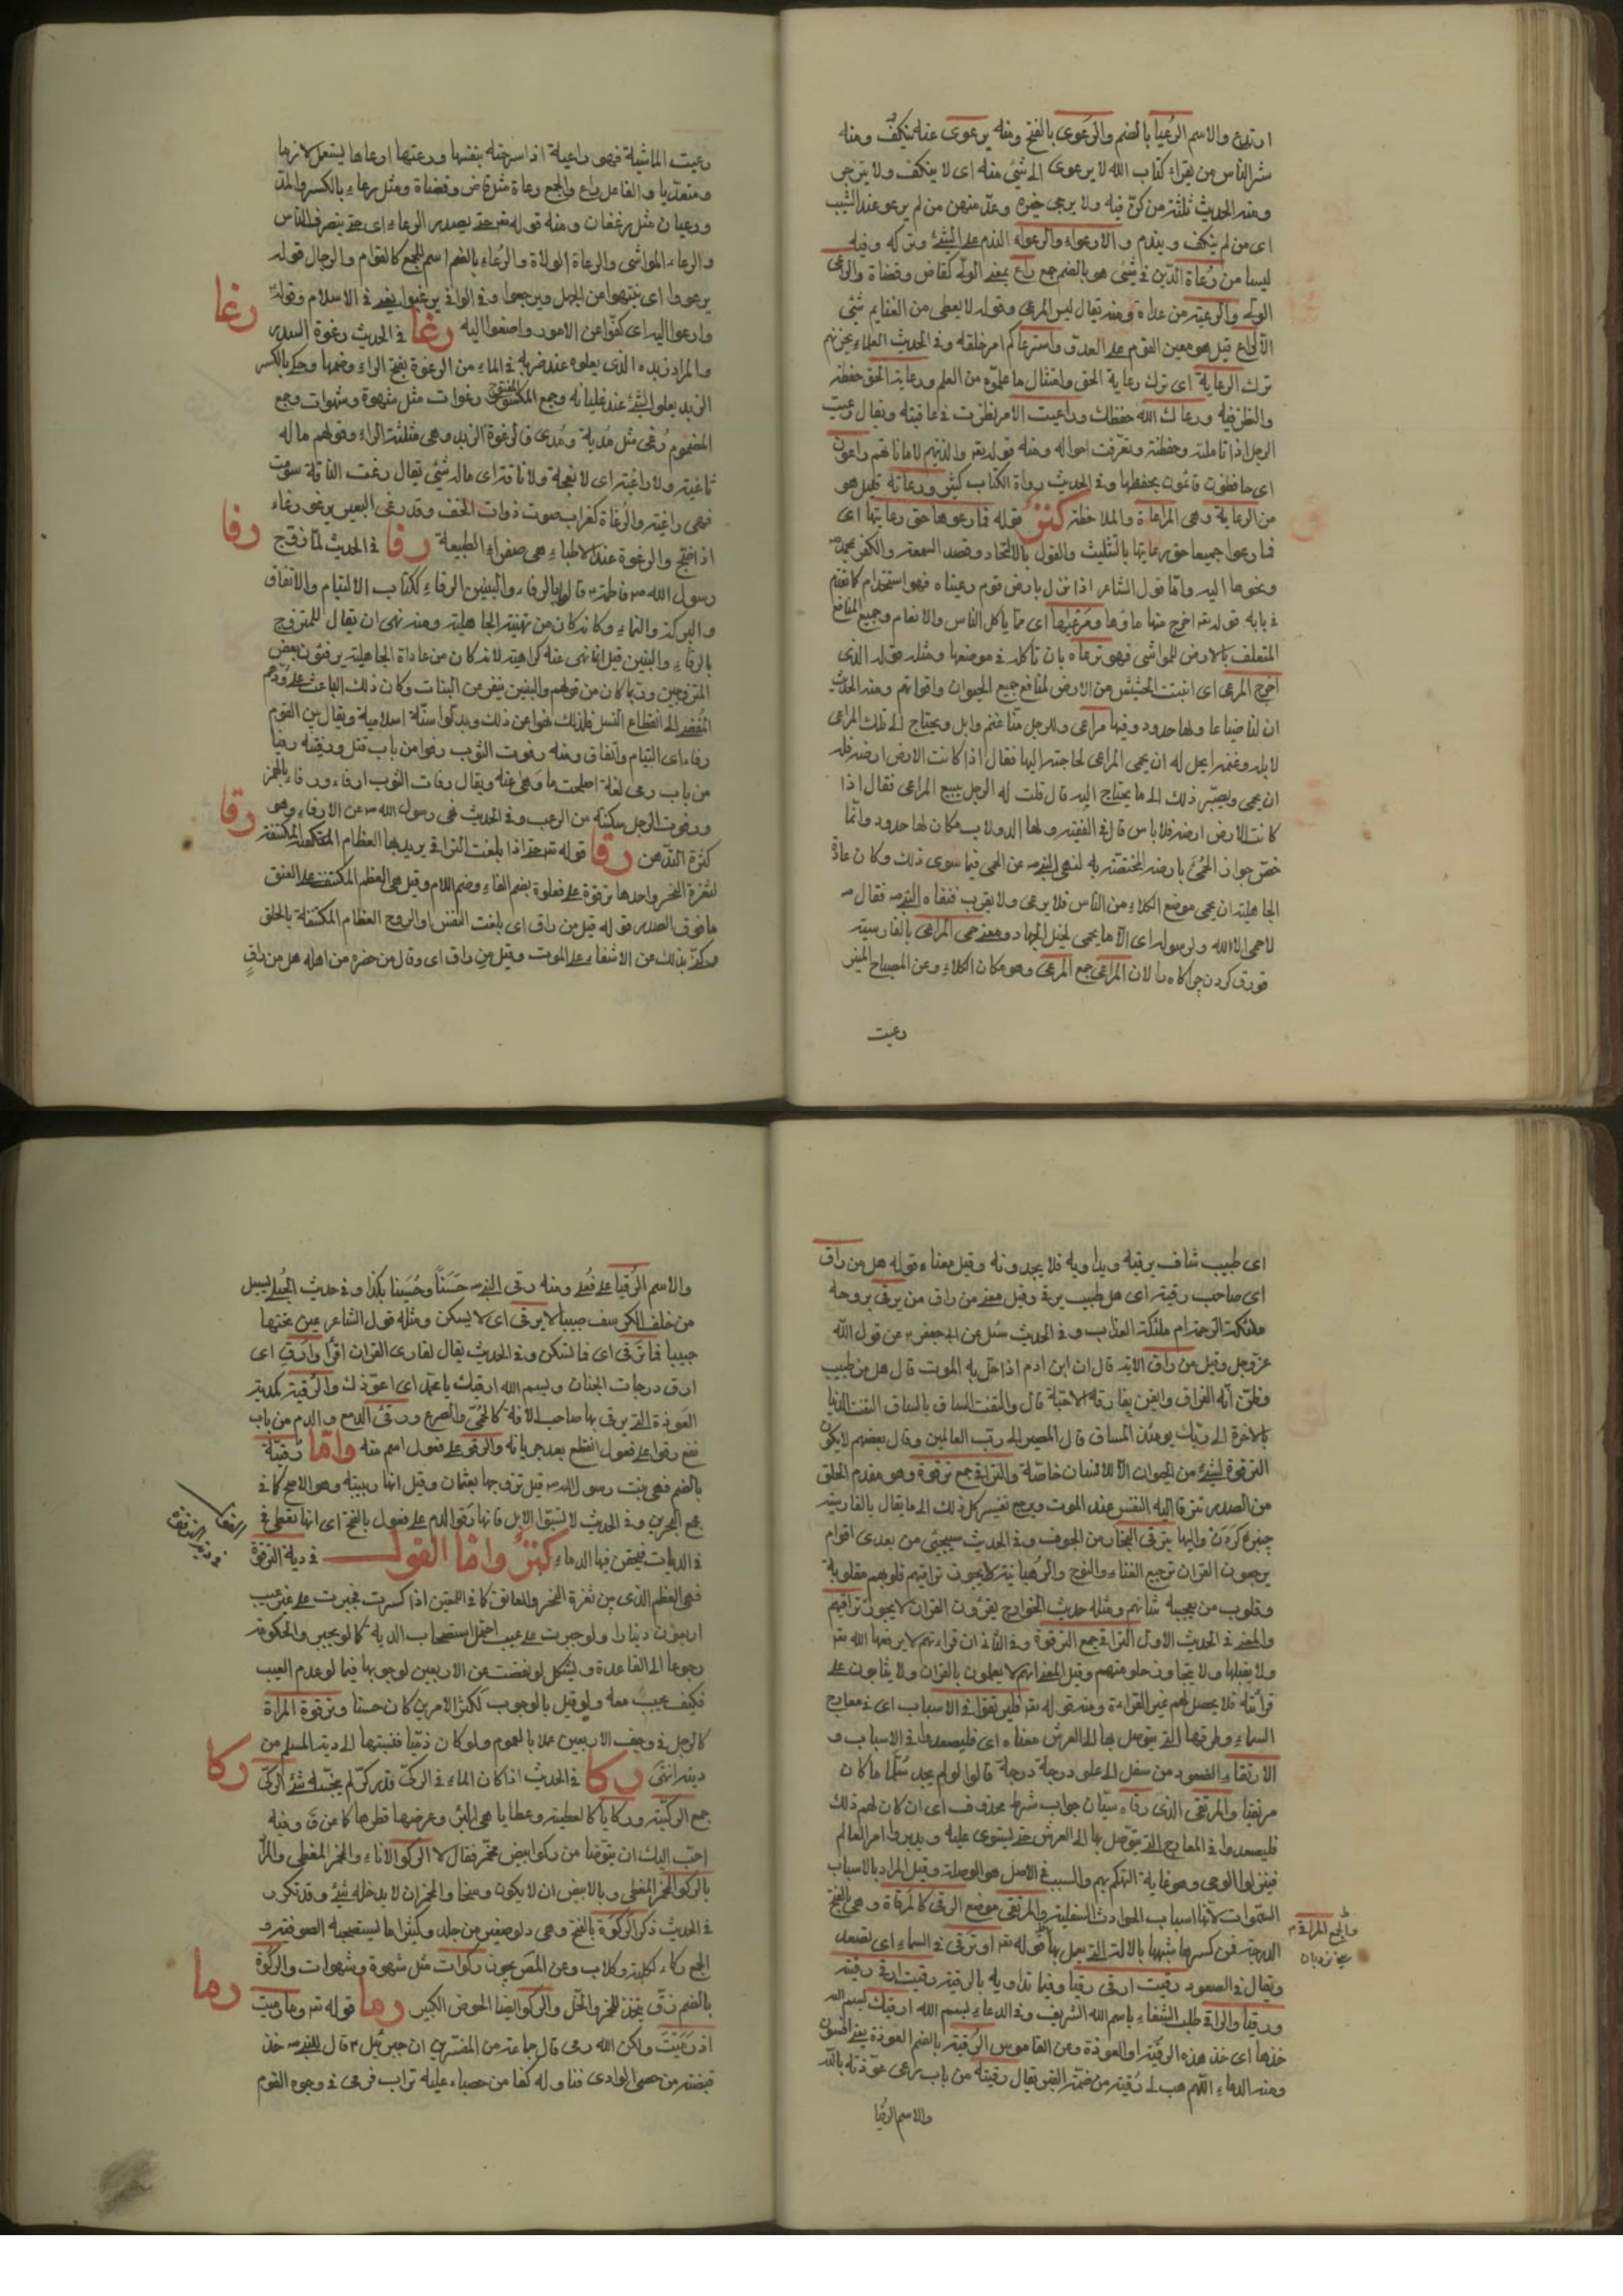 ارتدع والاسم الرعيا بالضم والرعوى بالفتح ومنه يرعوى عنه ينكف ومنه
شر الناس من يقراء كتاب الله لا يرعوى الى شئ منه اى لا ينكف ولا ينزجر
ومنه الحديث ثلثة من كن فيه ولا يرجى خيره وعد منهن من لم يرعو عند الشيب
اى من لم ينكف ويندم و الارعواء والرعواء الندم على الشئ وتركه وفيه
ليسا من رعاة الدين فى شئ هو بالضم جمع راع بمعنى الوالى كقاض وقضاة والراعى
الوالى والرعية من عداه ومنه يقال ليس المرعى وقوله لا يعطى من الغنايم شئ
الا لراع قيل هو معين القوم على العدو واسترعاكم امر خلقه وفى الحديث العلماء يحزنهم
ترك الرعاية اى ترك رعاية الحق وامتثال ما علموه من العلم ورعاية الحق حفظه
والنظر فيه ورعاك الله حفظك وراعيت الامر نظرت فى عاقبته ويقال رعيت
الرجل اذا تاملته وحفظته وتعرفت احواله ومنه قوله تعالى والذينهم لاماناتهم راعون
اى حافظون قائمون بحفظها وفى الحديث رواة الكتاب كثير ورعاته قليل هو
من الرعاية وهى المراعاة والملاحظة كنز قوله فما رعوها حق رعايتها اى
فما رعوا جميعا حق رعايتها بالتثليث والقول بالاتحاد وقصد السمعة والكفر بمحمد ص
ونحوها اليه واما قول الشاعر اذا نزل بارض قوم رعيناه فهو استخدام كما تقدم
فى بابه قوله تع اخرج منها ماؤها ومرعيها اى مما ياكل الناس والانعام وجميع المنافع
المتعلق بالارض للمواشى فهو ترعاه بان تأكله فى موضعها ومثله قوله الذى
اخرج المرعى اى انبت الحشيش من الارض لمنافع جميع الحيوان واقواتهم ومنه الحديث
ان لنا ضياعا ولها حدود وفيها مراعى وللرجل منا غنم وابل ويحتاج الى تلك المراعى
لابله وغنمه ايحل له ان يحمى المراعى لحاجته اليها فقال اذا كانت الارض ارضه فله
ان يحمى ويصير ذلك الى ما يحتاج اليه قال قلت له الرجل يبيع المراعى فقال اذا
كانت الارض ارضه فلا باس قال فى الفقيه ولها الدولاب مكان لها حدود وانما
خص جواز الحمى بارضه المختصة به لنهى النبى ص عن الحمى فيما سوى ذلك وكان عادة
الجاهلية ان يحمى موضع الكلاء من الناس فلا يرعى ولا يقرب فنفاه النبى ص فقال ص
لا حمى الا الله ولرسوله اى الا ما يحمى لخيل الجهاد ومعنى حمى المراعى بالفارسية
قورق كردن چراكاه را لان المراعى جمع المرعى وهو مكان الكلاء وعن المصباح المنير
رعيت
رعيت الماشية فهى راعية اذا سرحته بنفسها ورعتها ارعاها يستعمل لازما
ومتعديا والفاعل راع والجمع رعاة مثل قاض وقضاة ومثل رعاء بالكسر والمد
ورعيان مثل رغفان ومنه قوله تعالى حتى يصدر الرعاء اى حتى ينصرف الناس
والرعاء المواشى والرعاة الولاة والرعاء بالضم اسم للجمع كالقوام والرجال قوله
يرعووا اى ينتهوا من الجهل ويرجعوا وفى الوافى يرغبوا يعنى فى الاسلام وقوله
وارعوا اليه اى كفوا عن الامور واصغوا اليه رغا فى الحديث رغوة السدر
رغا
والمراد زبده الذى يعلوه عند ضربه فى الماء من الرغوة بفتح الراء وضمها وحكى بالكسر
الزبد يعلوا الشئ عند غليانه وجمع المفتوح رغوات مثل شهوة وشهوات وجمع
المضموم رغى مثل مدية ومدى فالرغوة الزبد وهى مثلثة الراء وقولهم ما له
ثاغية ولا راغية اى لا نعجة ولا ناقة اى ما له شئ يقال رغت الناقة سوت
فهى راغية والرغاة كغراب صوت ذوات الخف وقد رغى البعير يرغو رغاء
اذا ضج والرغوة عند الاطباء هى صفراء الطبيعة رفا فى الحديث لما زوج
رفا
رسول الله ص فاطمة قالوا بالرفاء والبنين الرفاء ككتاب الالتيام والاتفاق
والبركة والنماء وكانه كان من تهنية الجاهلية ومنه نهى ان يقال للمتزوج
بالرفاء والبنين قيل انما نهى عنه كراهية لانه كان من عاداة الجاهلية يرفئون بعض
المتزوجين وربما كان من قولهم والبنين ينفر عن البنات وكان ذلك الباعث على وأدهم
المفضى الى انقطاع النسل فلذلك نهوا عن ذلك وبدلوا سنة اسلامية ويقال بين القوم
رفاء اى التيام واتفاق ومنه رفوت الثوب رفوا من باب قتل ورفيته رفيا
من باب رمى لغة اصلحت ما وهى عنه ويقال رفات الثوب ارفاء ورفاء بالهمز
ورفوت الرجل سكنته من الرعب وفى الحديث نهى رسول الله ص عن الارفاء وهو
كثرة التدهن رقا قوله تع حتى اذا بلغت التراقى يريد بها العظام المكتنفة
رقا
لثغرة النحر واحدها ترقوة على فعلوة بضم الفاء وضم اللام وقيل هى العظم المكتنف على العنق
ما فوق الصدر قوله قيل من راق اى بلغت النفس او الروح العظام المكتنفة بالحلق
وكنى بذلك عن الاشفاء على الموت وقيل من راق اى وقال من حضره من اهله هل من راق
اى طبيب شاف يرقيه ويداويه فلا يجدونه وقيل معناه قوله هل من راق
اى صاحب رقية اى هل طبيب يرقى وقيل معنى من راق من يرقى بروحه
ملئكة الرحمة ام ملئكة العذاب وفى الحديث سئل عن ابى جعفر ع عن قول الله
عز وجل وقيل من راق الاية قال ان ابن ادم اذا حل به الموت قال هل من طبيب
وظن انه الفراق وايقن بمفارقة الاحبة قال والتفت الساق بالساق التفت الدنيا
بالاخرة الى ربك يومئذ المساق قال المصير الى رب العالمين وقال بعضهم لا يكون
الترقوة لشئ من الحيوان الا للانسان خاصة والتراقى جمع ترقوة وهو مقدم الحلق
من الصدر تترقا اليه النفس عند الموت ويرجع تفسير كل ذلك الى ما يقال بالفارسية
چنبره كردن واليها يترقى البخار من الجوف وفى الحديث سيجيئ من بعدى اقوام
يرجعون القران ترجيع الغناء والنوح والرهبانية لا يجوز تراقيهم قلوبهم مقلوبة
وقلوب من يعجبه شانهم ومثله حديث الخوارج يقرؤن القران لا يجوز تراقيهم
والمعنى فى الحديث الاول التراقى جمع الترقوة وفى الثانى ان قراءتهم لا يرفعها الله تع
ولا يقبلها ولا يتجاوز حلوقهم وقيل المعنى انهم لا يعملون بالقران ولا يثابون على
قرائته فلا يحصل لهم غير القراءة ومنه قوله تع فليرتقوا فى الاسباب اى فى معارج
السماء وطرقها التى يتوصل بها الى العرش معناه اى فليصعدوا فى الاسباب و
الارتقاء الصعود من سفل الى علو درجة درجة قالوا لو لم يجد سلما ما كان
مرتقيا والمرتقى الذى رقاه سيان جواب شرط محذوف اى ان كان لهم ذلك
فليصعدوا فى المعارج التى يتوصل بها الى العرش حتى يستوى عليه ويدبروا امر العالم
فينزلوا الوحى وهو نهاية التهكم بهم والسبب فى الاصل هو الوصلة وقيل المراد بالاسباب
السموات لانها اسباب الحوادث السفلية والمرتقى موضع الرقى كالمرقاة وهى بالفتح
والجمع المراقى
يعنى نردبان
الدرجة فمن كسرها شبهها بالالة التى يعمل بها قوله تع او ترقى فى السماء اى تصعد
ويقال فى الصعود رقيت ارقى رقيا وفيما تداويه بالرقية رقيت ارقى رقية
ورقيا والراقى طلب الشفاء باسم الله الشريف وفى الدعاء بسم الله ارقيك بسم الله
خذها اى خذ هذه الرقية او العوذة وعن القاموس الرقية بالضم العوذة
ومنه الدعاء اللهم هب لى رقية من ضمة القبر يقال رقيته من باب رمى عوذته بالله
والاسم الرقيا
والاسم الرقيا على فعلى ومنه رقى النبى ص حسنا وحسينا بكذا وفى حديث الحبلى يسيل
من خلف الكرسف صبيبا لا يرقى اى لا يسكن ومثله قول الشاعر عين بختها
حبيبا فما ترقى اى فما تسكن وفى الحديث يقال لقارى القران اقرأ وارق اى
ارق درجات الجنان وبسم الله ارقيك يا محمد اى اعوذك والرقية كمدية
العوذة التى يرقى بها صاحب الافة كالحمى والصرع ورقئ الدمع والدم من باب
نفع رقوا على فعول انقطع بعد جريانه والرقو على فعول اسم منه واما رقية
بالضم فهى بنت رسول الله ص قيل تزوجها بعثمان وقيل انها ربيبته وهو الاصح كما فى
مجمع البحرين وفى الحديث لا تسبوا الابل فانها رقوا الدم على فعول بالفتح اى انها تعطى فى
فى الديات فيحقن فيها الدماء كنز واما القول فى دية الترقوة
فهى العظم الذى بين ثغرة النحر والعاتق كما فى اللمعتين اذا كسرت فجبرت على غير عيب
اربعون دينارا ولو جبرت على عيب احتمل استصحاب الدية كما لو يجبر والحكومة
رجوعا الى القاعدة ويشكل لو نقصت عن الاربعين لوجوبها فيما لو عدم العيب
فكيف يجب معه ولو قيل بالوجوب لكثر الامرين كان حسنا وترقوة المراة
كالرجل فى وجيف الاربعين عملا بالعموم ولو كان ذميا فنسبتها الى دية المسلم من
ديته انتهى ركا فى الحديث اذا كان الماء فى الركى قدر كر لم ينجسه شئ الركى
ركا
جمع الركية وركايا كالعطية وعطايا هى البئر وعرضها قطرها كما عن ق وفيه
احب اليك ان يتوضا من ركوا بيض مخمر فقال لا الركوا الاناء والمخمر المغطى والمراد
بالركوا المخمر المغطى وبالابيض ان لا يكون وسخا والمخمر ان لا يدخله شئ وقد تكرر
فى الحديث ذكر الركوة بالفتح وهى دلو صغير من جلد وكثيرا ما يستصحبه الصوفية و
الجمع ركاء ككلبة وكلاب وعن المص يجوز ركوات مثل شهوة وشهوات والركوة
بالضم زق يتخذ للخمر والخل والركوا ايضا الحوض الكبير رما قوله تع وما رميت
رما
اذ رميت ولكن الله رمى قال جماعة من المفسرين ان جبرئيل ع قال للنبى ص خذ
قبضة من حصى الوادى فناوله كفا من حصباء عليه تراب فرمى فى وجوه القوم